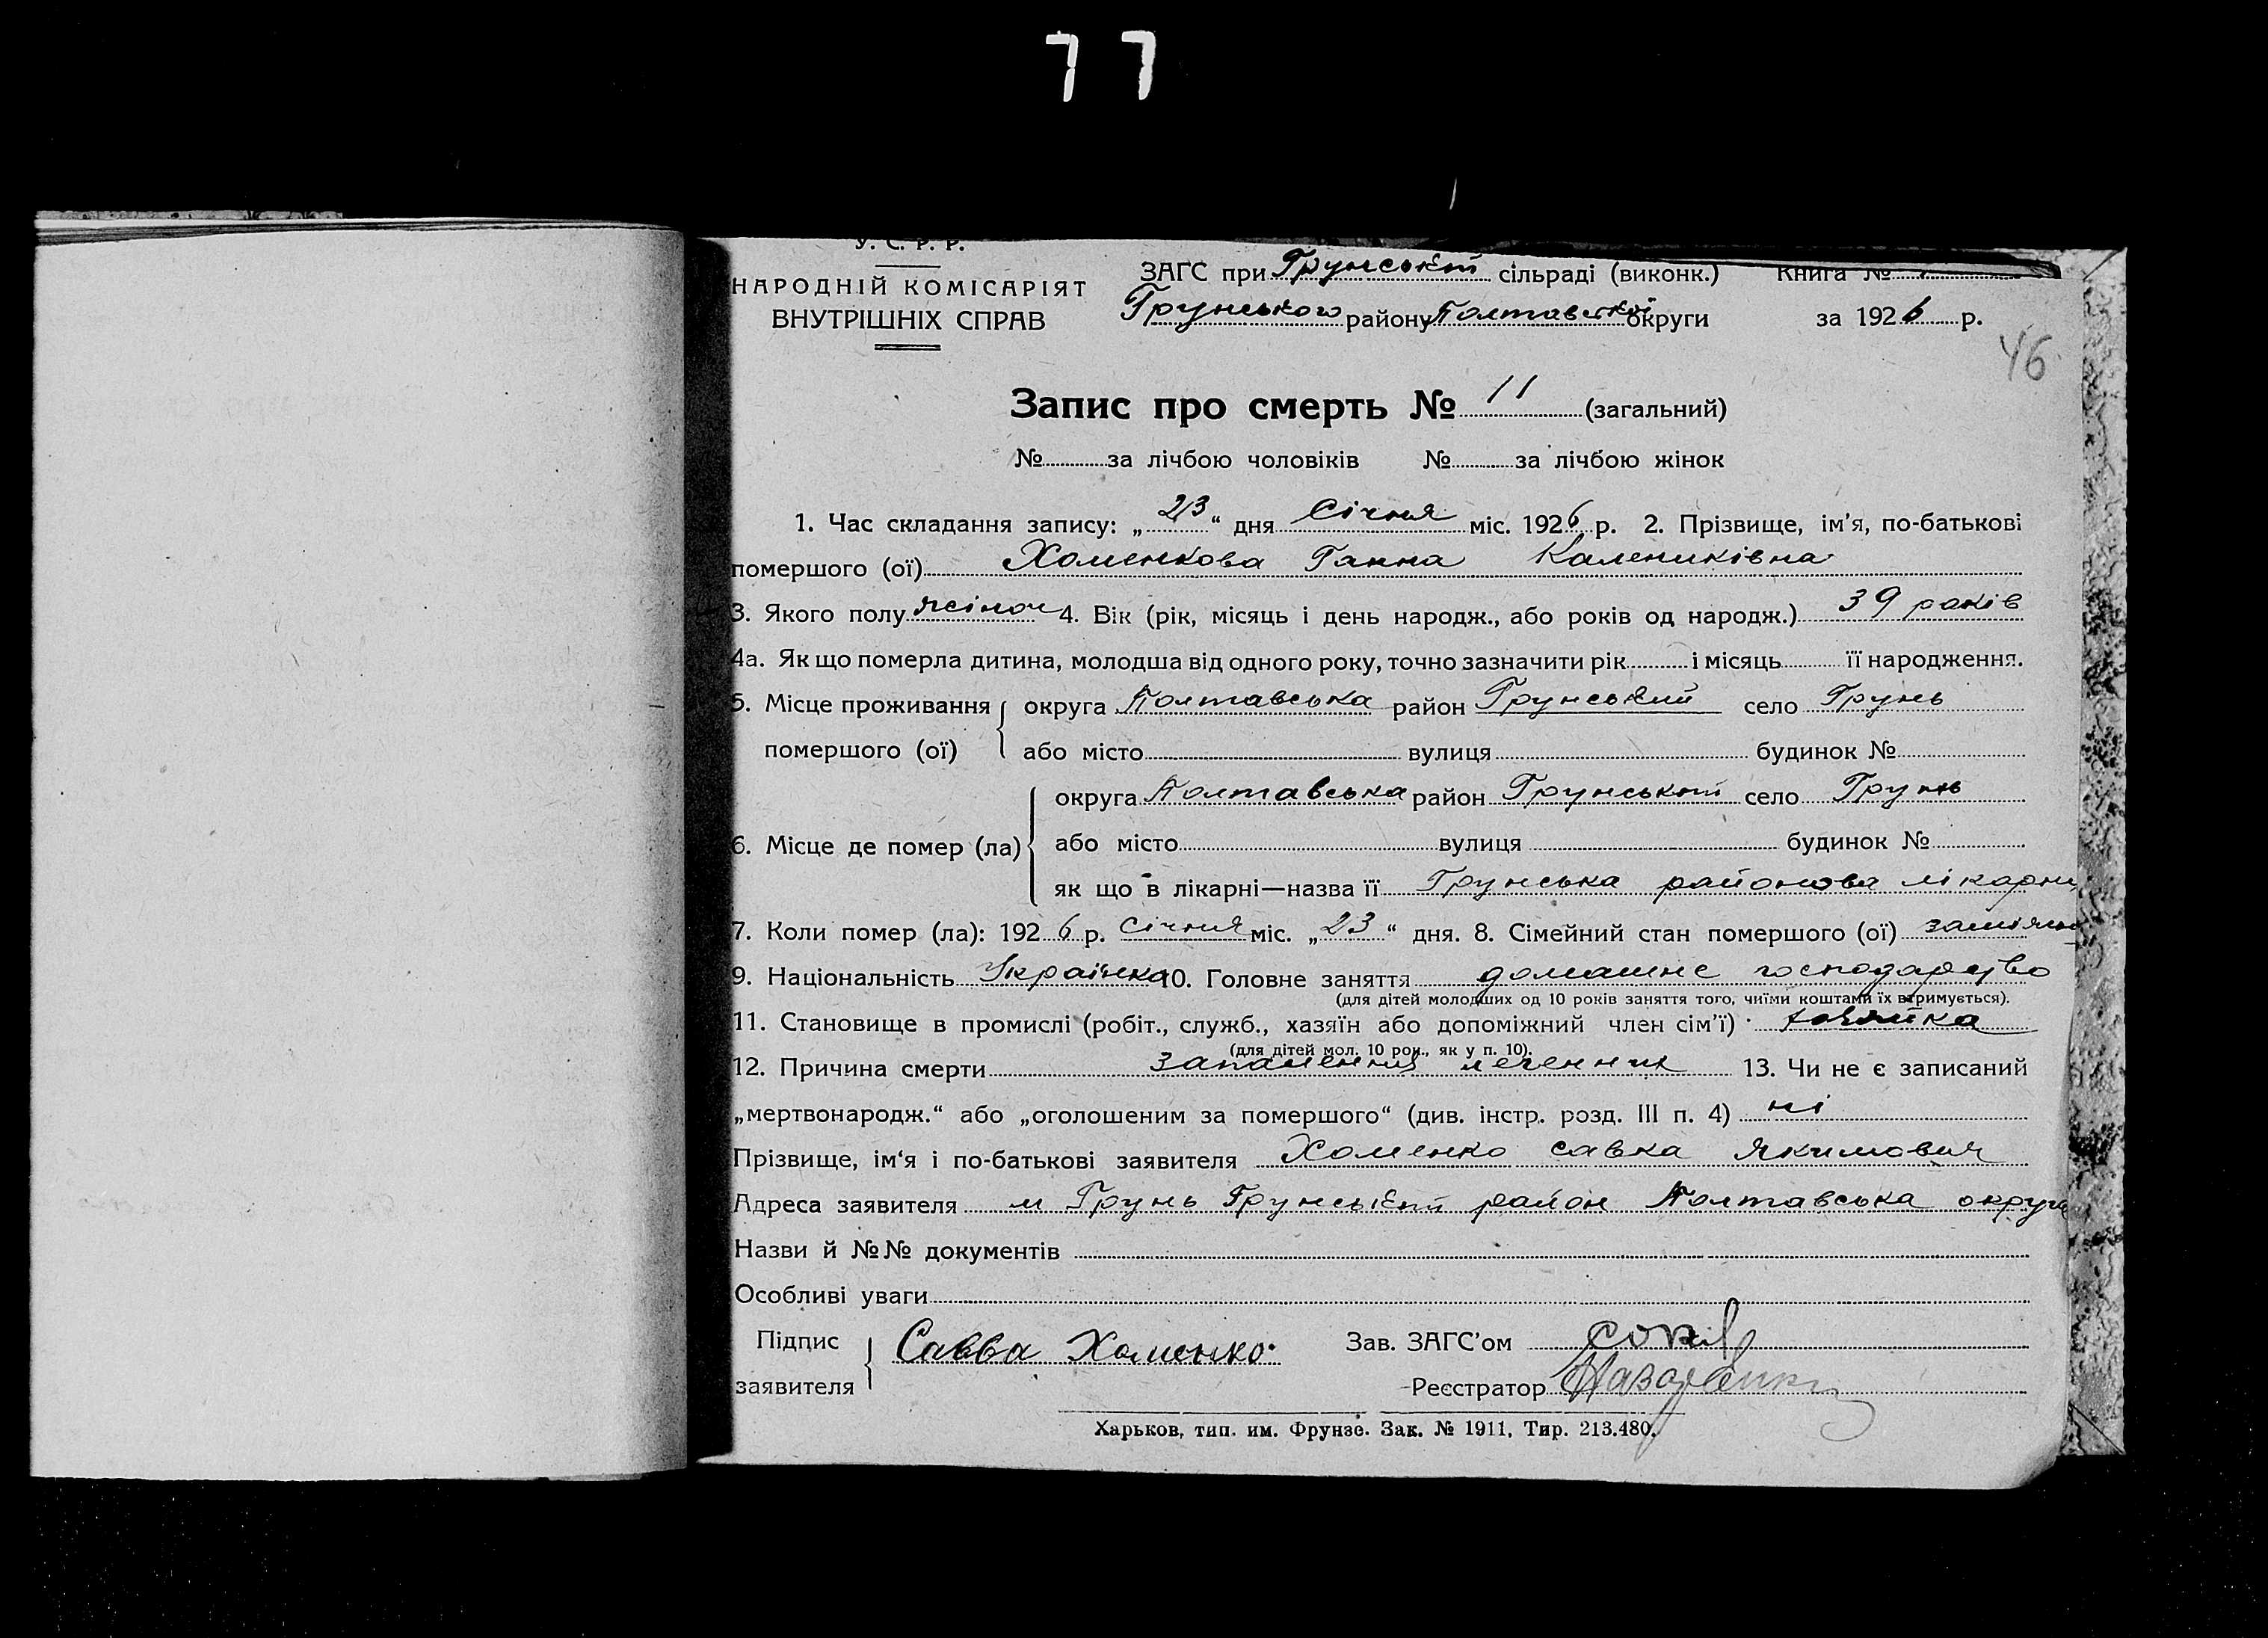 77
У. С. Р. Р.
НАРОДНІЙ КОМІСАРІЯТ
ВНУТРІШНІХ СПРАВ
ЗАГС при Грунській сільраді (виконк.) Книга №
Грунського району Полтавської округи за 1926 р.
46
Запис про смерть № 11 (загальний)
№ за лічбою чоловіків № за лічбою жінок
1. Час складання запису: „23“ дня Січня міс. 1926 р. 2. Прізвище, ім’я, по-батькові
помершого (ої) Хоменкова Ганна Калениківна
3. Якого полу жіноч 4. Вік (рік, місяць і день народж., або років од народж.) 39 років
4а. Як що померла дитина, молодша від одного року, точно зазначити рік і місяць її народження.
5. Місце проживання округа Полтавська район Грунський село Грунь
помершого (ої) або місто вулиця будинок №
округа Полтавська район Грунський село Грунь
6. Місце де помер (ла) або місто вулиця будинок №
як що в лікарні—назва її Грунська районова лікарн
7. Коли помер (ла): 1926 р. Січня міс. „23“ дня. 8. Сімейний стан помершого (ої)
9. Національність Українка 10. Головне заняття домашнє господарство
(для дітей молодших од 10 років заняття того, чиїми коштами їх втримується).
11. Становище в промислі (робіт., служб., хазяїн або допоміжний член сім’ї) хазяйка
(для дітей мол. 10 рок., як у п. 10).
12. Причина смерти запалення легенних 13. Чи не є записаний
„мертвонародж.“ або „оголошеним за помершого“ (див. інстр. розд. III п. 4) ні
Прізвище, ім‘я і по-батькові заявителя Хоменко Савка Якимович
Адреса заявителя м Грунь Грунський район Полтавська округа
Назви й №№ документів
Особливі уваги
Підпис Савва Хоменко Зав. ЗАГС’ом
заявителя Реєстратор
Харьков, тип. им. Фрунзе. Зак. № 1911, Тир. 213.480.